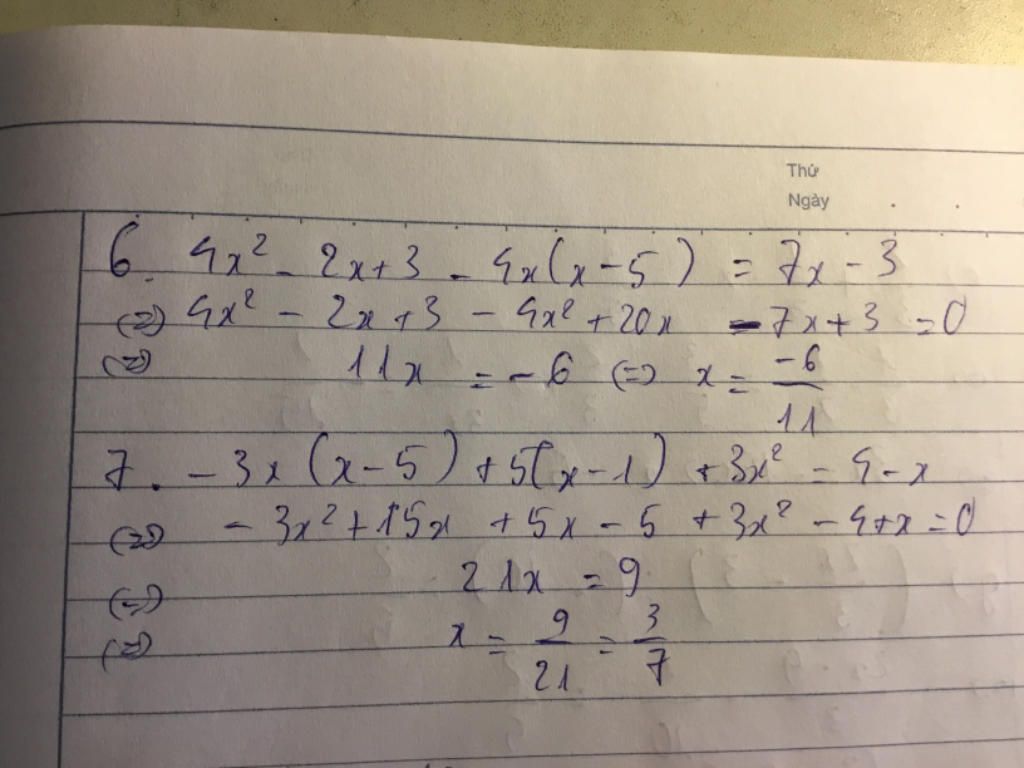 Thứ
Ngày
6. 4x² - 2x + 3 - 4x(x - 5) = 7x - 3
(=) 4x² - 2x + 3 - 4x² + 20x - 7x + 3 = 0
(=) 11x = -6 (=) x = -6/11
7. -3x(x - 5) + 5(x - 1) + 3x² = 4 - x
(=) -3x² + 15x + 5x - 5 + 3x² - 4 + x = 0
(=) 21x = 9
(=) x = 9/21 = 3/7